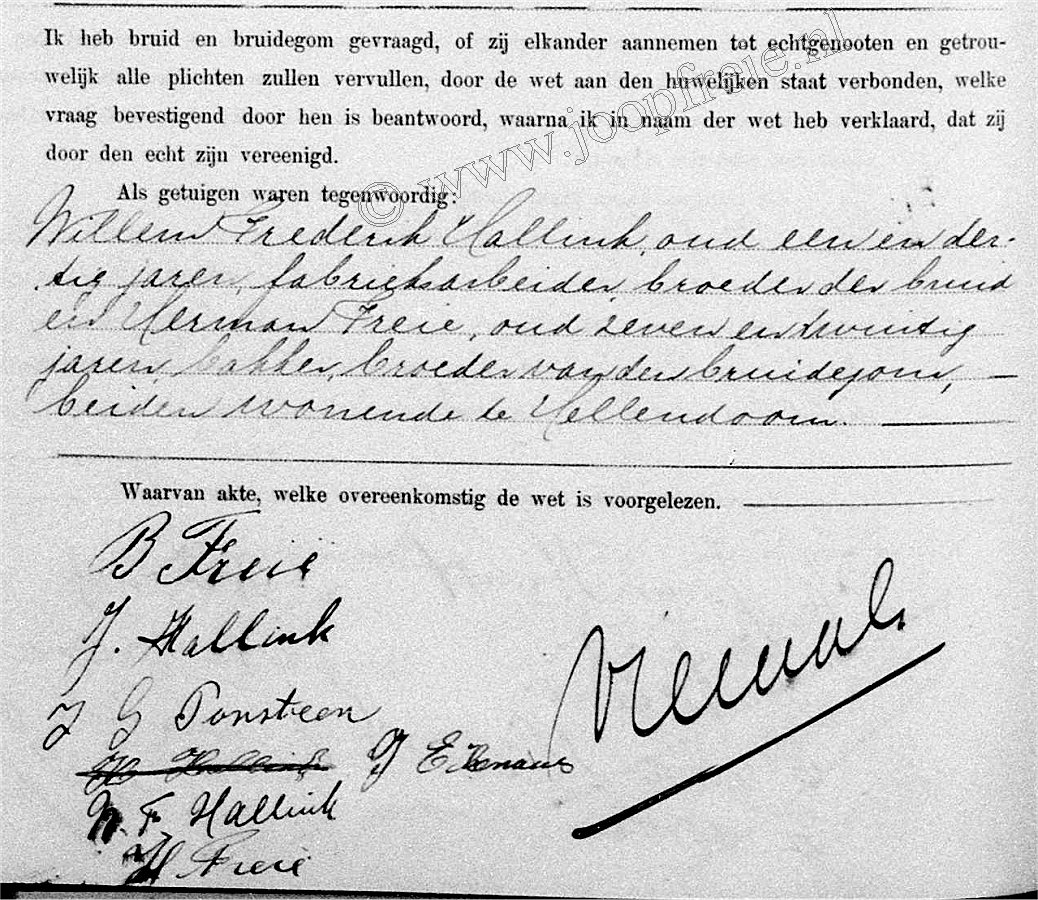 Ik heb bruid en bruidegom gevraagd, of zij elkander aannemen tot echtgenooten en getrou-
welijk alle plichten zullen vervullen, door de wet aan den huwelijken staat verbonden, welke
vraag bevestigend door hen is beantwoord, waarna ik in naam der wet heb verklaard, dat zij
door den echt zijn vereenigd.
Als getuigen waren tegenwoordig:
© www.joopfreie.nl
Willem Frederik Hallink, oud een en der-
tig jaren, fabrieksarbeider, broeder der bruid
en Herman Freie, oud zeven en twintig
jaren, bakker, broeder van den bruidegom,
beiden wonende te Hellendoorn.
Waarvan akte, welke overeenkomstig de wet is voorgelezen.
B Freie
J. Hallink
J G Ponsteen
Hallink J E
W. F. Hallink
H Freie